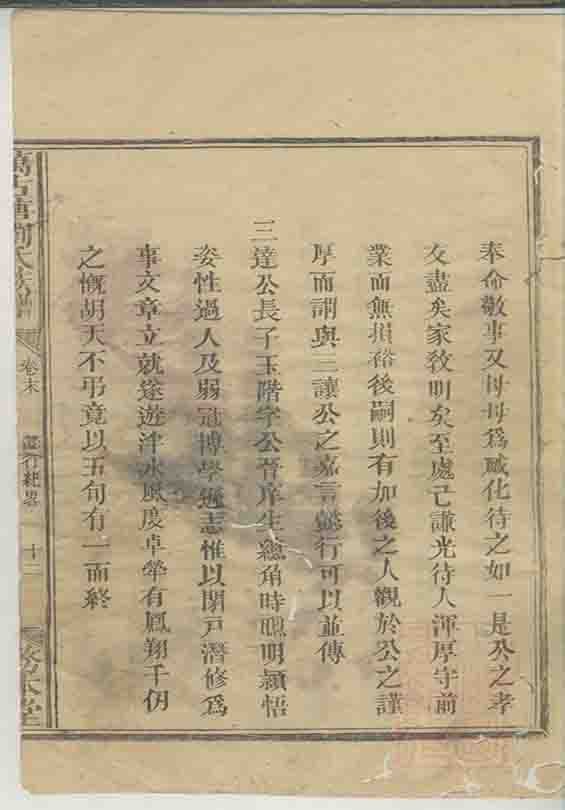 奉命敬事又母母爲臧化待之如一是公之孝
友盡矣家敎明矣至處己謙光待人渾厚守前
業而無損裕後嗣則有加後之人觀於公之謹
厚而謂與三讓公之嘉言懿行可以並傳
三達公長子玉階字公晉庠生總角時聰明穎悟
姿性過人及弱冠博學遜志惟以閉戸潛修爲
事文章立就遂遊泮水風度卓犖有鳳翔千仞
之慨胡天不弔竟以五旬有一而終
劉氏族譜
卷末
行紀畧
十二
堂